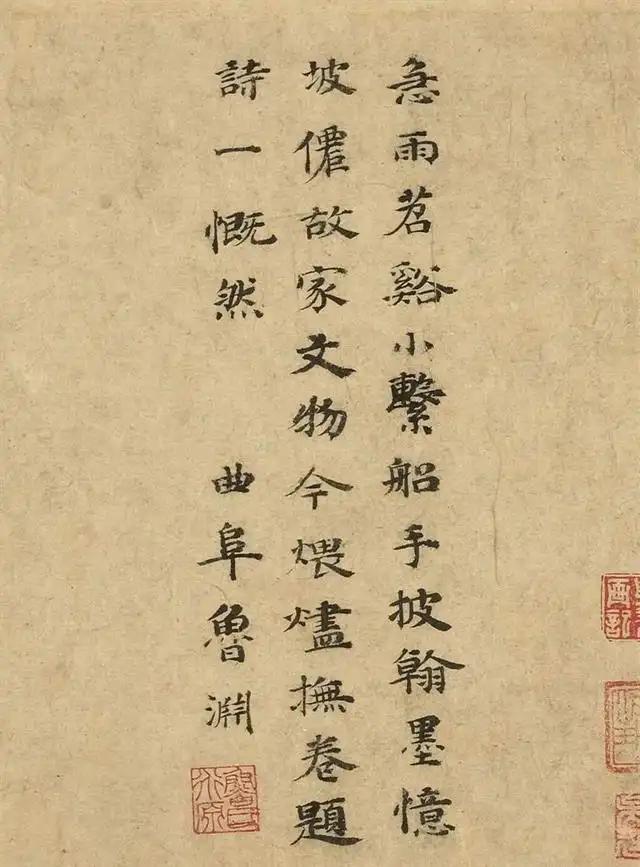 急雨苕谿小繫船手披翰墨憶
坡僊故家文物今煨燼撫卷題
詩一慨然 曲阜魯淵